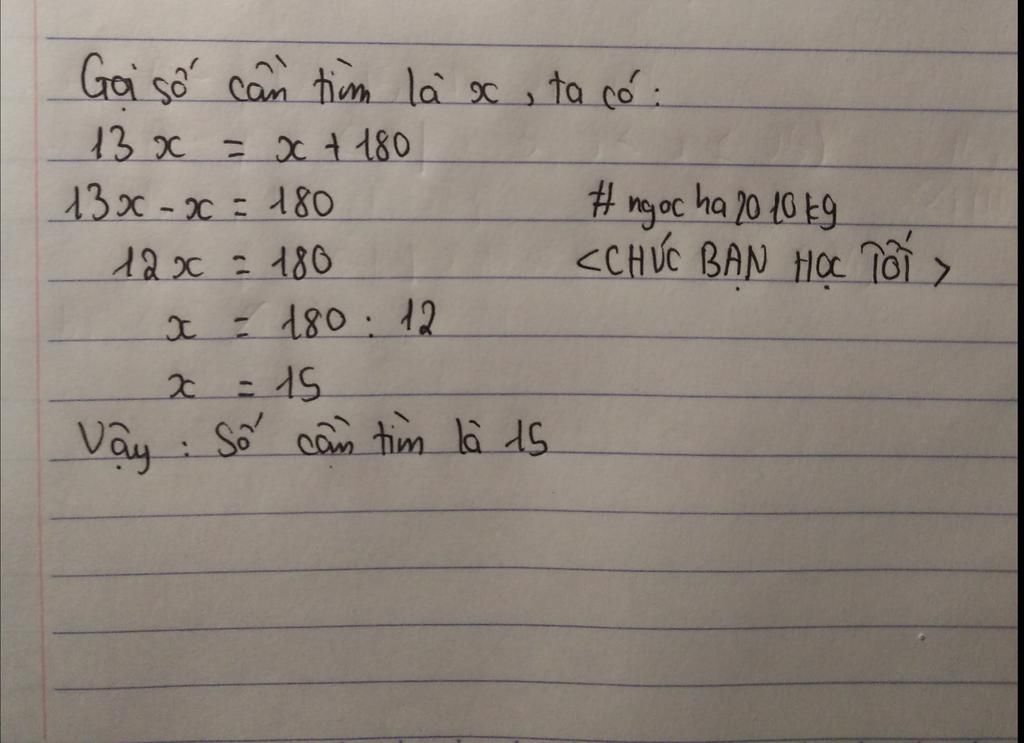 Gọi số cần tìm là x, ta có:
13x = x + 180
13x - x = 180
#ngocha2010kg
12x = 180
<CHÚC BẠN HỌC TỐT>
x = 180 : 12
x = 15
Vậy : Số cần tìm là 15